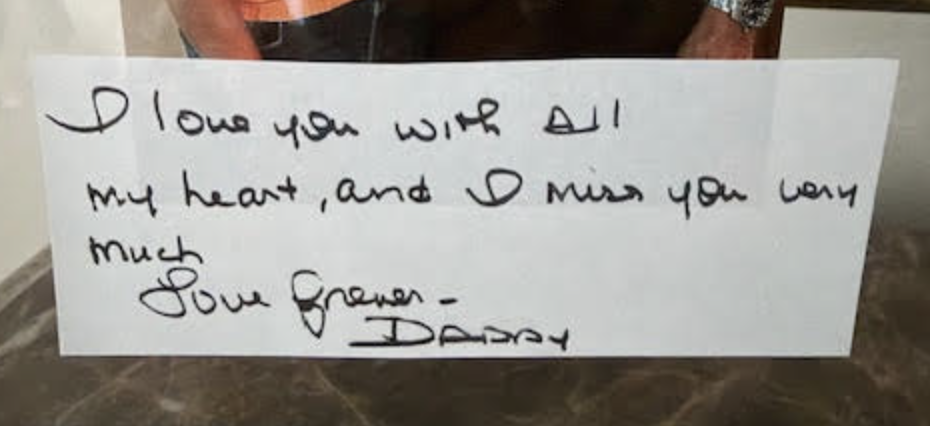 I love you with All
my heart, and I miss you very
much
Love forever -
DADDY